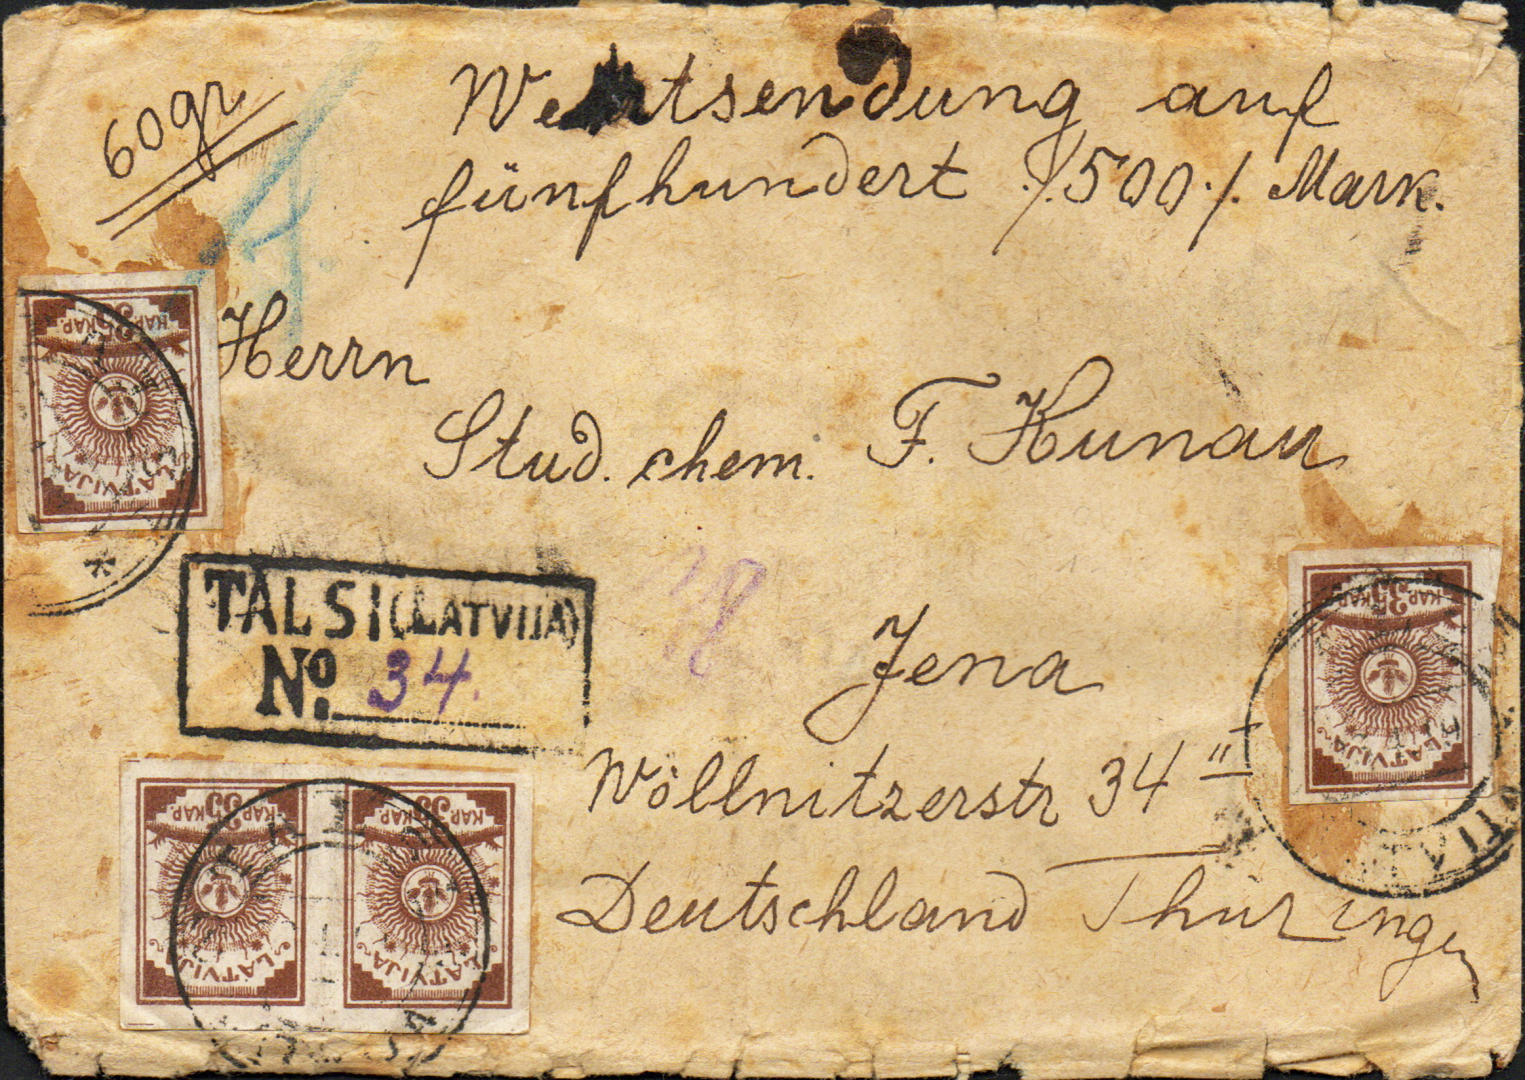 60gr
Wertsendung auf
fünfhundert ./500./. Mark.
Herrn
Stud. chem. F. Hunau
TALSI (LATVIJA)
No. 34.
Jena
Wöllnitzerstr 34 II
Deutschland Thuringen
35
KAP. KAP.
LATVIJA
35
KAP. KAP.
LATVIJA
35
KAP. KAP.
LATVIJA
35
KAP. KAP.
LATVIJA